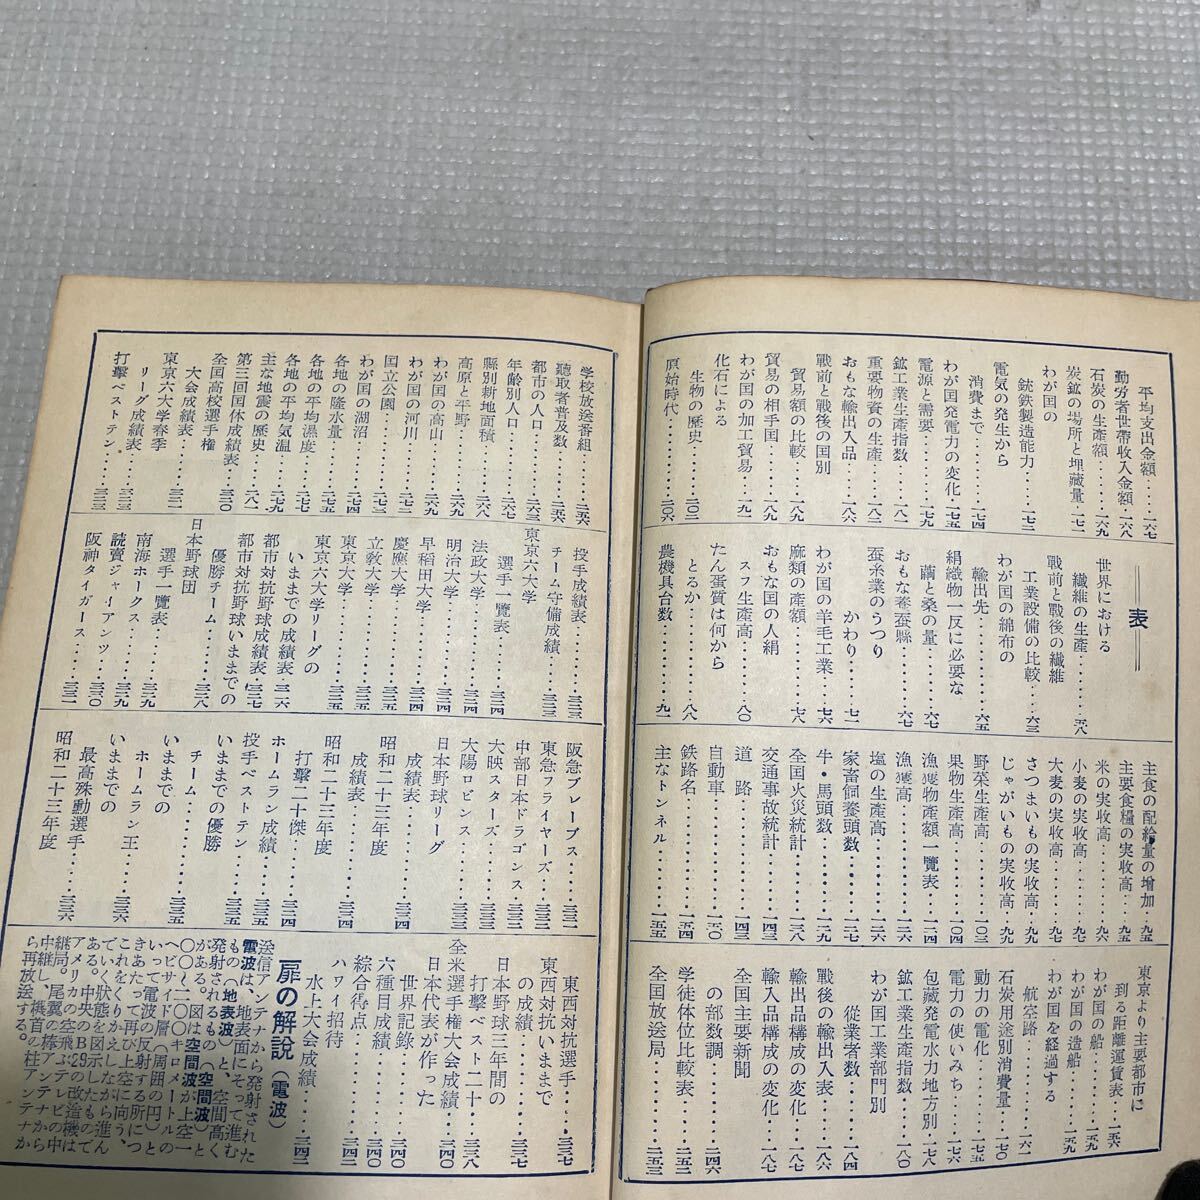 平均支出金額……一六七
勤労者世帯收入金額…一六八
石炭の生産額……一六九
炭鉱の場所と埋藏量…一七一
わが国の
銑鉄製造能力……一七三
電気の発生から
消費まで……一七四
わが国発電力の変化…一七五
電源と需要……一七九
鉱工業生産指数……一八一
重要物資の生産……一八二
おもな輸出入品……一八六
戰前と戰後の国別
貿易額の比較……一八九
貿易の相手国……一八九
わが国の加工貿易…一九一
化石による
生物の歴史……二〇二
原始時代……二〇六
表
世界における
繊維の生産……五八
戰前と戰後の繊維
工業設備の比較…六三
わが国の綿布の
輸出先……六五
絹織物一反に必要な
繭と桑の量……六七
おもな養蚕縣……六七
蚕糸業のうつり
かわり……七一
わが国の羊毛工業…七六
麻類の産額……七八
おもな国の人絹
スフ生産高……八〇
たん蛋質は何から
とるか……八八
農機具台数……九一
主食の配給量の増加…九五
主要食糧の実收高…九五
米の実收高……九七
小麦の実收高……九七
大麦の実收高……九七
さつまいもの実收高…九九
じゃがいもの実收高…九九
野菜生産高……一〇三
果物生産高……一〇四
漁獲物産額一覧表
漁獲高……一二四
塩の生産高……一二六
家畜飼養頭数……一二八
牛・馬頭数……一二九
全国火災統計……一四三
交通事故統計……一四四
道路……一四八
自動車……一五〇
鉄路名……一五四
主なトンネル……一五五
東京より主要都市に
到る距離運賃表…一五六
わが国の船……一五九
わが国の造船……一五九
わが国を経過する
航空路……一六一
石炭用途別消費量…一七〇
動力の電化……一七五
電力の使いみち…一七六
包藏発電水力地方別…一七八
鉱工業生産指数……一八〇
わが国工業部門別
從業者数……一八四
戰後の輸出入表…一八六
輸出品構成の変化…一八七
輸入品構成の変化…一八七
全国主要新聞
の部数調……二四六
学徒体位比較表……二五二
全国放送局……二五三
学校放送番組……二五六
聽取者普及数……二五六
都市の人口……二六三
年齡別人口……二六七
縣別耕地面積……二六八
高原と平野……二六九
わが国の高山……二六九
わが国の河川……二七二
わが国の湖沼……二七三
国立公園……二七四
各地の隆水量……二七五
各地の平均濕度……二七七
各地の平均気温……二七九
主な地震の歴史……二八一
第三回国体成績表…三二〇
全国高校選手権
大会成績表……三二一
東京六大学春季
リーグ成績表……三二三
打撃ベストテン……三二三
投手成績表……三二三
チーム守備成績……三二三
東京六大学
選手一覧表……三二四
法政大学……三二四
明治大学……三二四
早稲田大学……三二四
慶應大学……三二五
立教大学……三二五
東京大学……三二五
東京六大学リーグの
いままでの成績表…三二六
都市対抗野球成績表…三二七
都市対抗野球いままでの
優勝チーム……三二八
日本野球団
選手一覧表……三二九
南海ホークス……三二九
読賣ジャイアンツ…三三〇
阪神タイガース……三三一
阪急ブレーブス……三三二
東急フライヤーズ…三三二
中部日本ドラゴンス…三三三
大映スターズ……三三三
大陽ロビンス……三三三
日本野球リーグ
成績……三三三
昭和二十三年度
成績表……三三四
昭和二十三年度
打撃二十傑……三三四
ホームラン成績……三三四
投手ベストテン……三三五
いままでの優勝
チーム……三三五
いままでの
ホームラン王……三三六
いままでの
最高殊勳選手……三三六
昭和二十三年度
東西対抗選手……三三七
東西対抗いままで
の成績……三三七
日本野球三年間の
打撃ベスト二十…三三八
全米選手権大会成績
日本代表が作った
世界記録……三四〇
六種目成績……三四〇
綜合得点……三四〇
ハワイ招待
水上大会成績……三四二
扉の解説（電波）
送信アンテナから発射された
電波は、地表面にそって進む
もの（地表波）と、空間高く
発射されるもの（空間波）と
がある。図は空間波が上空一
〇〇〜二〇〇キロメートルの
ヘビサイド層（周囲の円）と
いって電波の反射する所につ
きあたって再び上空に向う、
これをくりかえしながら進ん
でいく状態を図示したもので
ある。中央のB29の改造機は
アメリカの空飛ぶテレビの中
継局。尾翼の棒アンテナから
中継し、機首の柱アンテナか
ら再放送する。